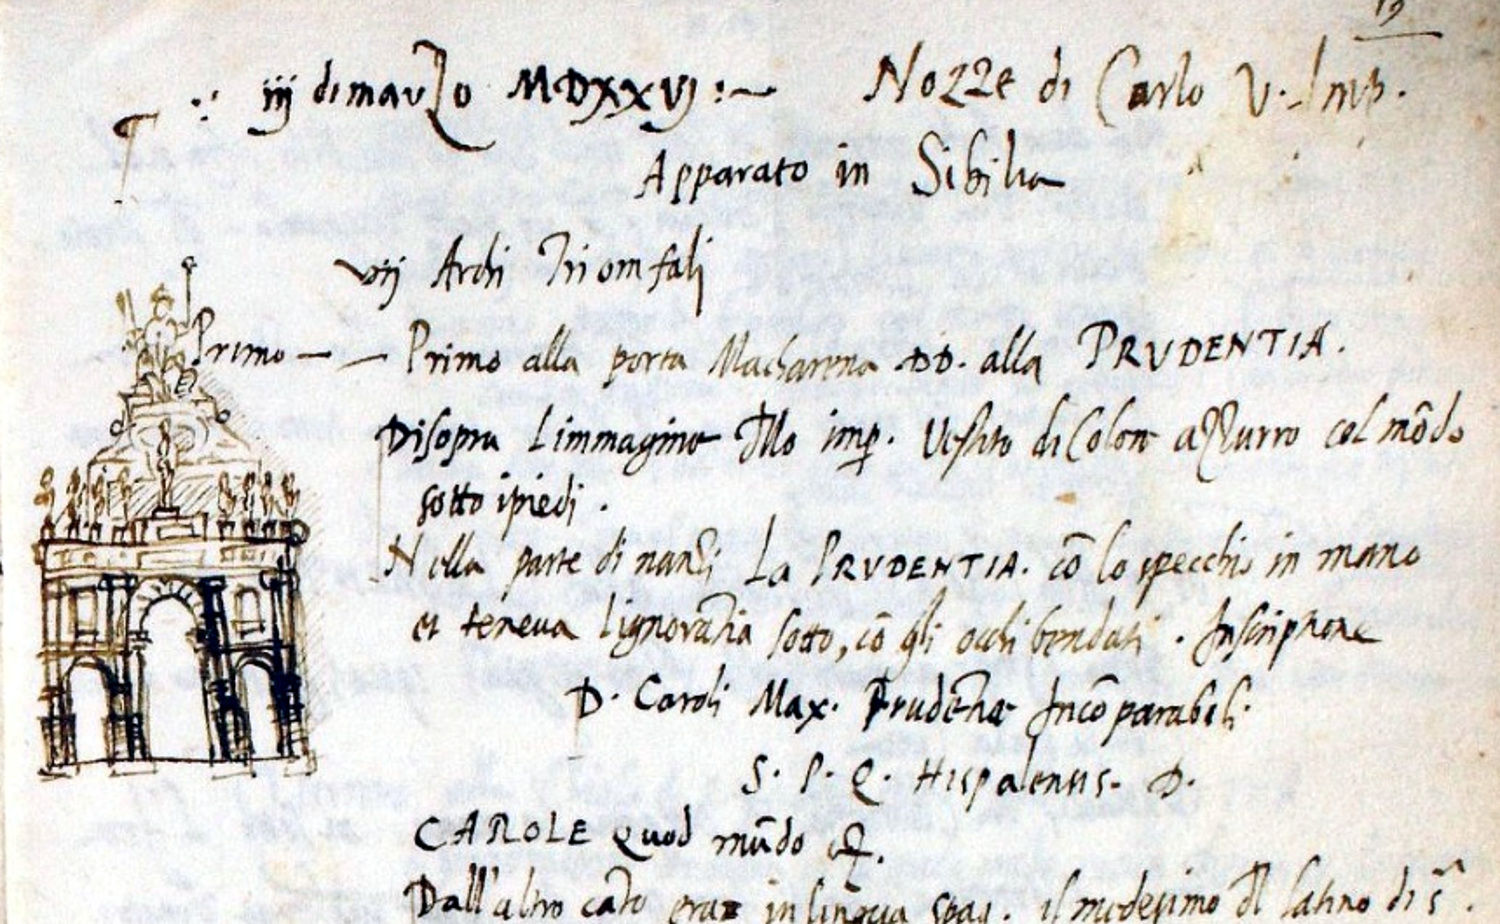 19
iij di marzo MDXXVI :— Nozze di Carlo V. Imp.
Apparato in Sibilia
vij Archi Triomfali
Primo — — Primo alla porta Macharena DD. alla PRVDENTIA.
Disopra l immagine dello imp. Vestito di Colore azzurro col mōdo
sotto i piedi .
Nella parte di nanzi La PRVDENTIA. cō lo specchio in mano
et teneua lignorātia sotto, cō gli occhi bendati . Inscriptione
D. Caroli Max. Prudētiae Incōparabili.
S. P. Q. Hispalensis. D.
CAROLE Quod mūdo
Dall'altro cāto era in lingua spag. il medesimo del latino di sᵃ.